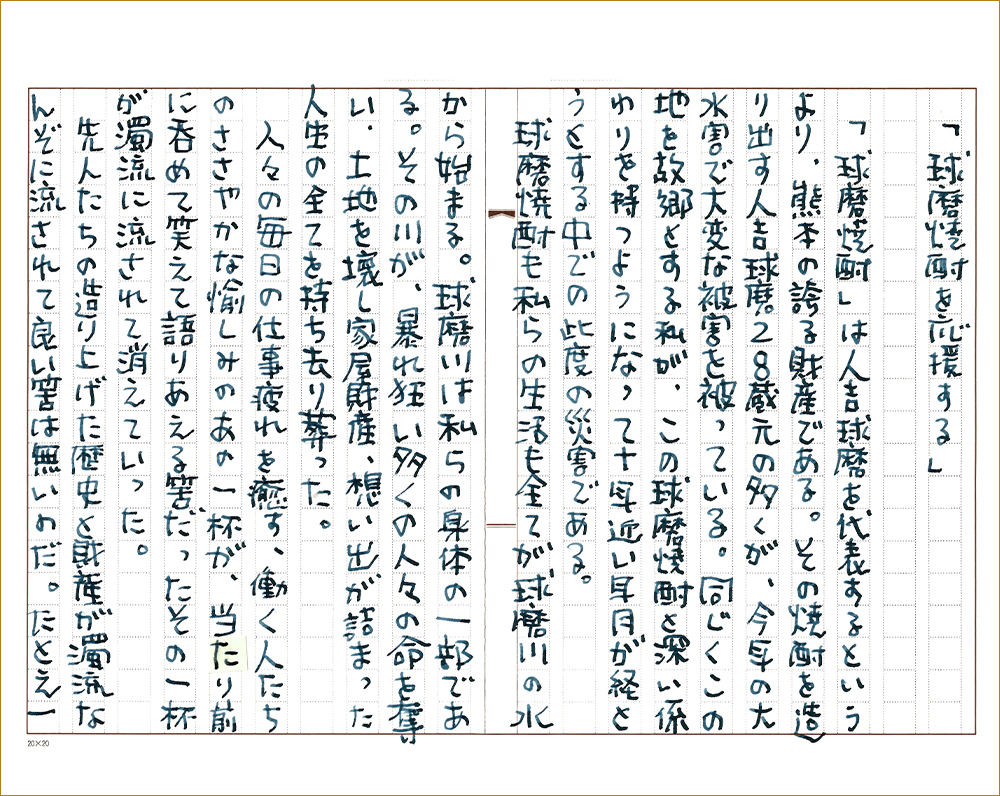 「球磨焼酎を応援する」
「球磨焼酎」は人吉球磨を代表するという
より、熊本の誇る財産である。その焼酎を造
り出す人吉球磨28蔵元の多くが、今年の大
水害で大変な被害を被っている。同じくこの
地を故郷とする私が、この球磨焼酎と深い係
わりを持つようになって十年近い年月が経と
うとする中での此度の災害である。
球磨焼酎も私らの生活も全てが球磨川の水
から始まる。球磨川は私らの身体の一部であ
る。その川が、暴れ狂い多くの人々の命を奪
い、土地を壊し家屋財産、想い出が詰まった
人生の全てを持ち去り葬った。
人々の毎日の仕事疲れを癒す、働く人たち
のささやかな愉しみのあの一杯が、当たり前
に呑めて笑えて語りあえる筈だったその一杯
が濁流に流されて消えていった。
先人たちの造り上げた歴史と財産が濁流な
んぞに流されて良い筈は無いわだ。たとえ一
20×20